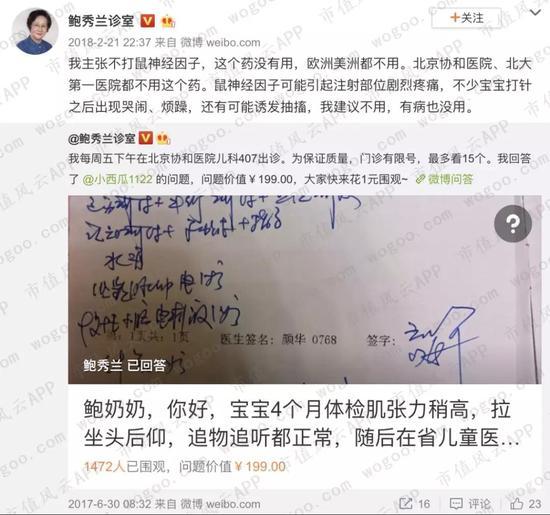 鲍秀兰诊室
+关注
2018-2-21 22:37 来自 微博 weibo.com
我主张不打鼠神经因子，这个药没有用，欧洲美洲都不用。北京协和医院、北大
第一医院都不用这个药。鼠神经因子可能引起注射部位剧烈疼痛，不少宝宝打针
之后出现哭闹、烦躁，还有可能诱发抽搐，我建议不用，有病也没用。
@鲍秀兰诊室
我每周五下午在北京协和医院儿科407出诊。为保证质量，门诊有限号，最多看15个。我回答
了 @小西瓜1122 的问题，问题价值￥199.00，大家快来花1元围观~ 微博问答
?
第1页共：1页 医生签名：颜华 0768 签字：
鲍秀兰 已回答
鲍奶奶，你好，宝宝4个月体检肌张力稍高，拉
坐头后仰，追物追听都正常，随后在省儿童医...
1472人已围观，问题价值￥199.00
2017-6-30 08:32 来自 微博 weibo.com
16 评论 23
市值风云APP
wogoo.com